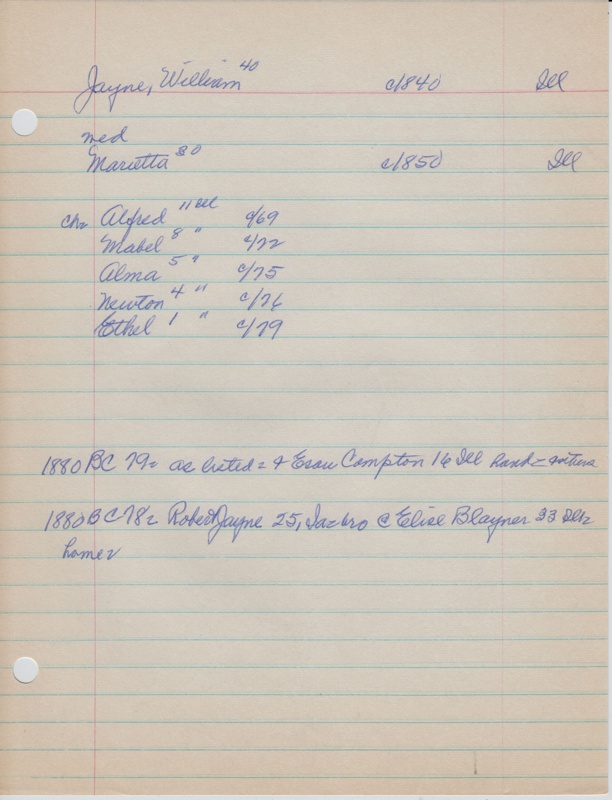 Jayne, William 40 c/1840 Ill
med
Marietta 30 c/1850 Ill
ch= Alfred 11 Ill c/69
Mabel 8 " c/72
Alma 5 " c/75
Newton 4 " c/76
Ethel 1 " c/79
1880 BC 79= as listed= & Esau Compton 16 Ill hand=
1880 BC 78= Robert Jayne 25, Ia= bro @ Elise Blayner 33 Ill=
home=